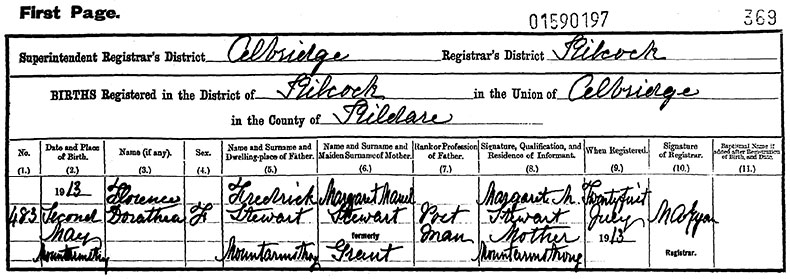 First Page. 01590197 369
Superintendent Registrar's District Celbridge Registrar's District Kilcock
BIRTHS Registered in the District of Kilcock in the Union of Celbridge
in the County of Kildare
No. Date and Place of Birth. Name (if any). Sex. Name and Surname and Dwelling-place of Father. Name and Surname and Maiden Surname of Mother. Rank or Profession of Father. Signature, Qualification, and Residence of Informant. When Registered. Signature of Registrar. Baptismal Name if added after Registration of Birth, and Date.
(1.) (2.) (3.) (4.) (5.) (6.) (7.) (8.) (9.) (10.) (11.)
1913 Florence Fredrick Margaret Margaret M. Twenty first
483 Second Dorathea F Stewart Stewart Stewart July
May formerly Man Mother 1913
Mountarmstrong Mountarmstrong Grant Mountarmstrong Registrar.